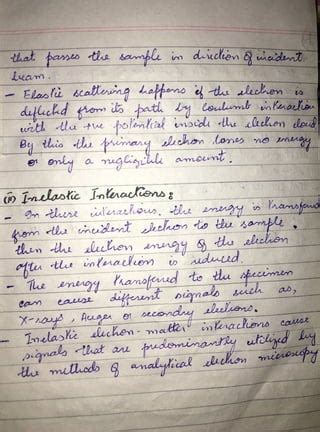 that passes the sample in direction of incident
beam.
- Elastic scattering happens if the electron is
deflectd from its path by Coulumb interaction
with the +ve potential inside the electron cloud.
By this the primary electron loses no energy
or only a negligible amount.
(ii) Inelastic Interactions:
- In these interactions, the energy is transferd
from the incident electron to the sample.
then the electron energy of the electron
after the interaction is reduced.
- The energy transferred to the specimen
can cause different signals such as,
X-rays, Auger or secondry electrons.
- Inelastic electron-matter interactions cause
signals that are predominantly utilized by
the methods of analytical electron microscopy